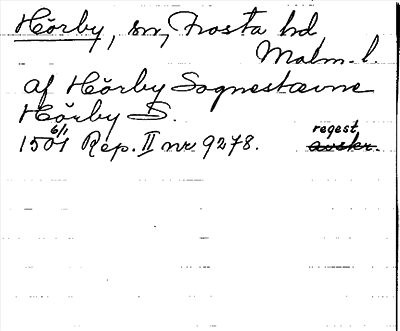 Hörby, sn, Frosta hd,
Malm. l.
af Hörby Sognestævne
Hörby S.
1501 6/1 Rep. II nr. 9278. regest
avskr.